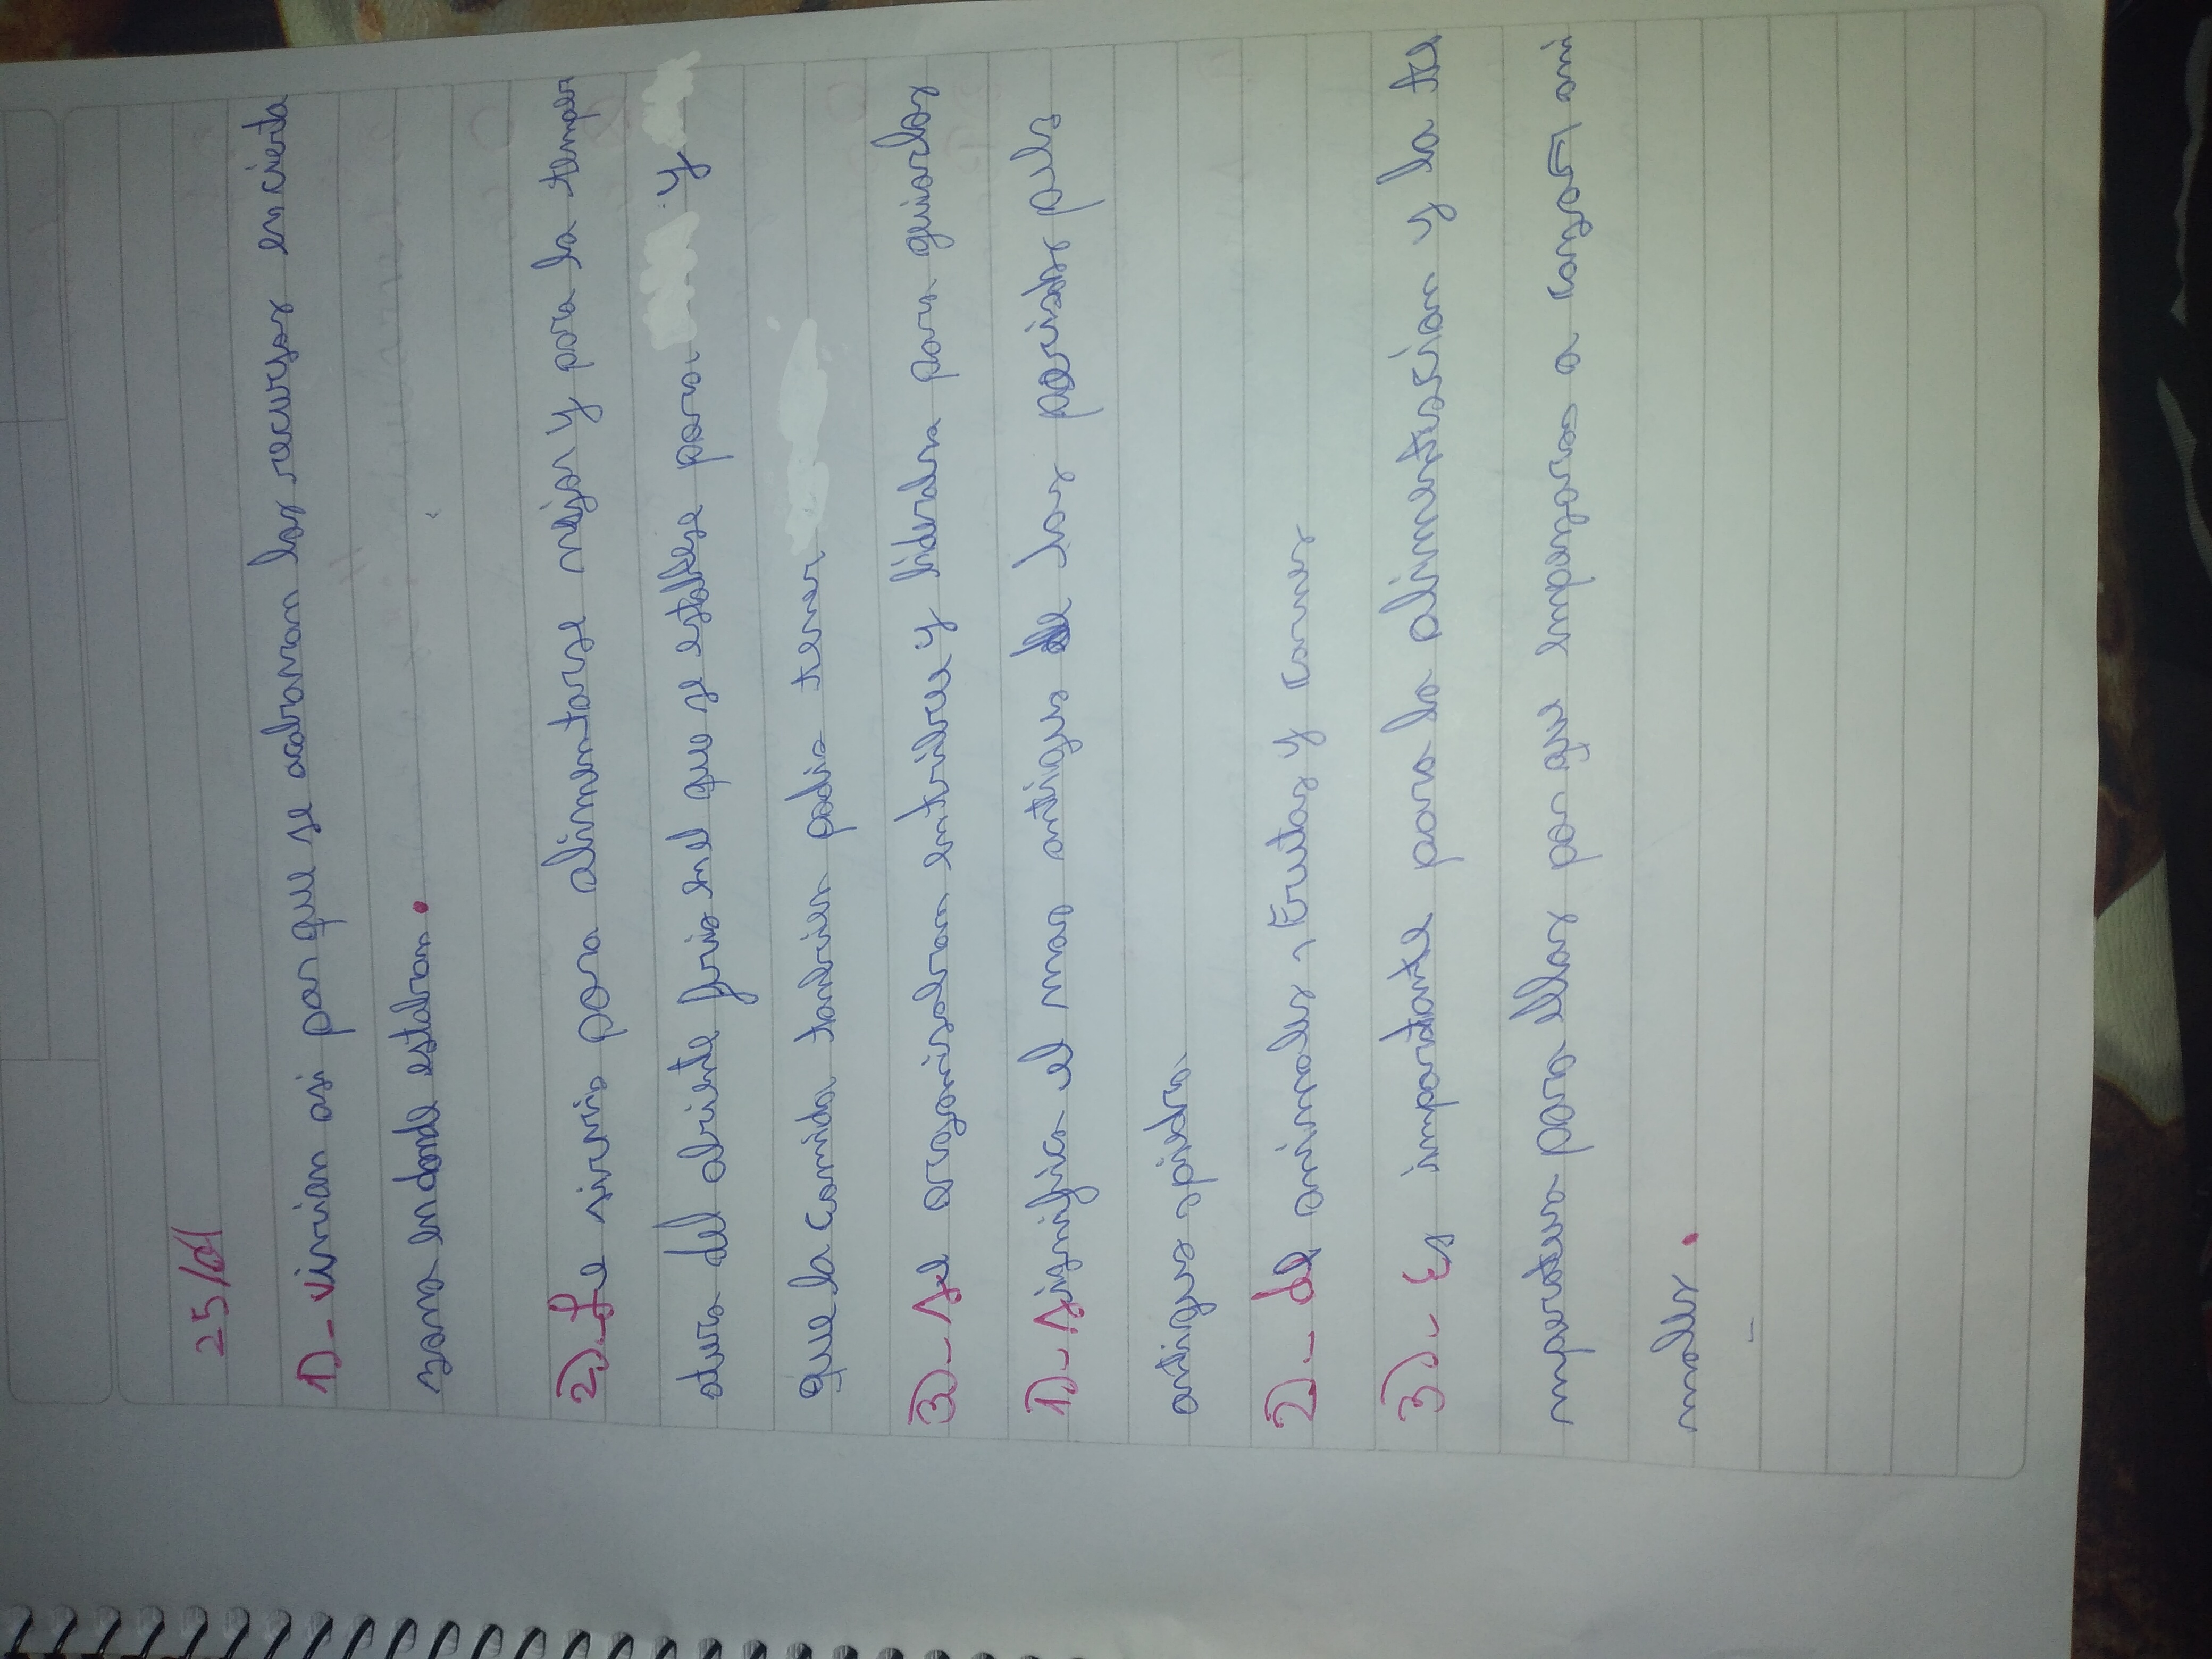 25/04
1)- vivian asi por que se acabavan los recursos en cierta
zona en donde estaban.
2)- Le sirvio para alimentarse mejor y para la temper
atura del abiente frio en el que se establese para y
que la comida tambien podia tener
3)- se organizaban entribus y lideres para guiarlos
1)- significa el mas antiguo de los periodos pale
antiguo piedra.
2)- de animales, Frutas y carnes
3)- Es importante para la alimentasion y la te
mperatura para ellos por que empezaron a cazar ani
males.